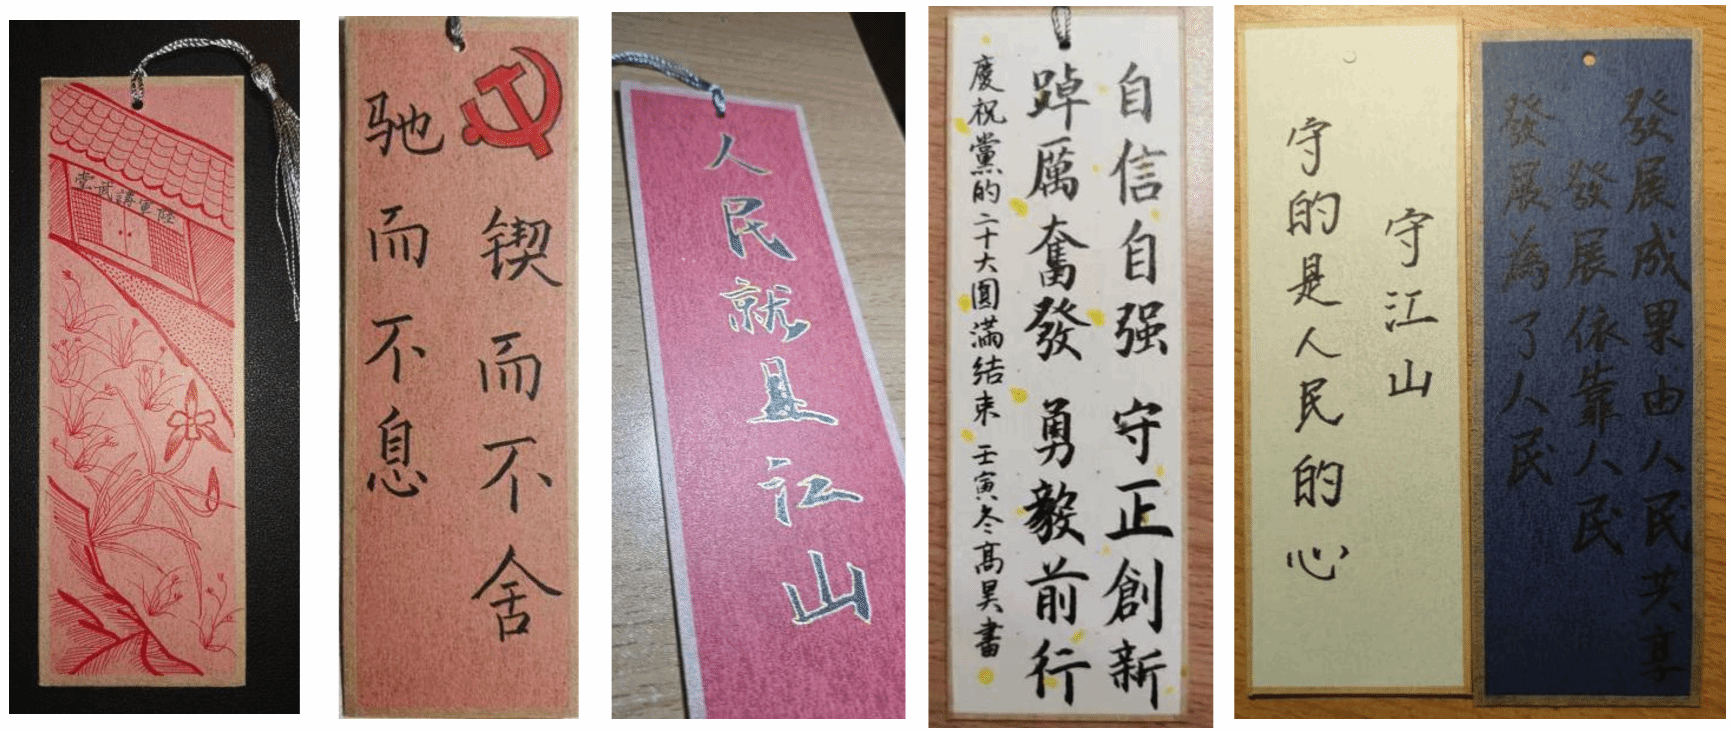 陸軍講武堂
锲而不舍
驰而不息
人民就是江山
自信自强 守正創新
踔厲奮發 勇毅前行
慶祝黨的二十大圓滿結束 壬寅冬高昊書
守江山
守的是人民的心
發展成果由人民共享
發展依靠人民
發展為了人民